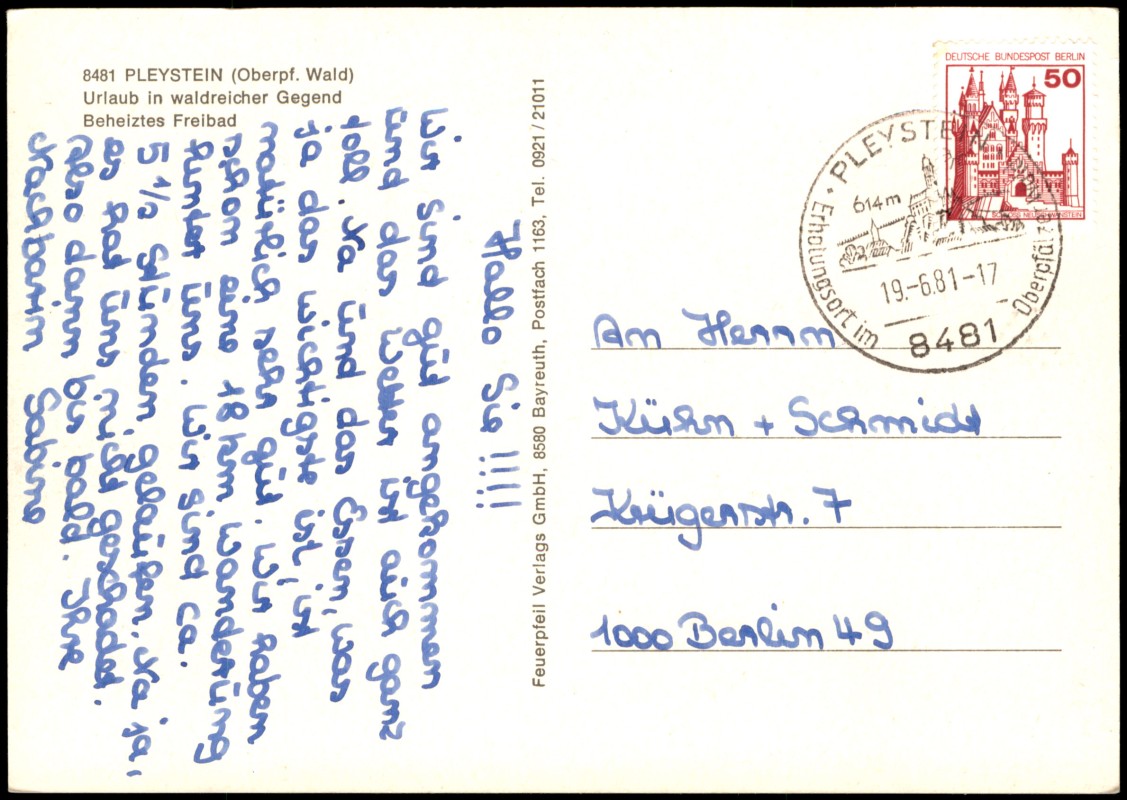 8481 PLEYSTEIN (Oberpf. Wald)
Urlaub in waldreicher Gegend
Beheiztes Freibad
Hallo Sie !!!!
wir sind gut angekommen
und das Wetter ist auch ganz
toll. Na und das Essen, was
ja das wichtigste ist, ist
natürlich sehr gut. Wir haben
schon eine 18 km Wanderung
hinter uns. Wir sind ca.
5 1/2 Stunden gelaufen. Na ja,
es hat uns nicht geschadet.
Also dann bis bald. Ihre
Nachbarin Sabine
Feuerpfeil Verlags GmbH, 8580 Bayreuth, Postfach 1163, Tel. 0921 / 21011
DEUTSCHE BUNDESPOST BERLIN
50
SCHLOSS NEUSCHWANSTEIN
PLEYSTEIN
614m
Erholungsort im Oberpfälzer
19.-6.81-17
8481
An Herrn
Kühn + Schmidt
Krügerstr. 7
1000 Berlin 49